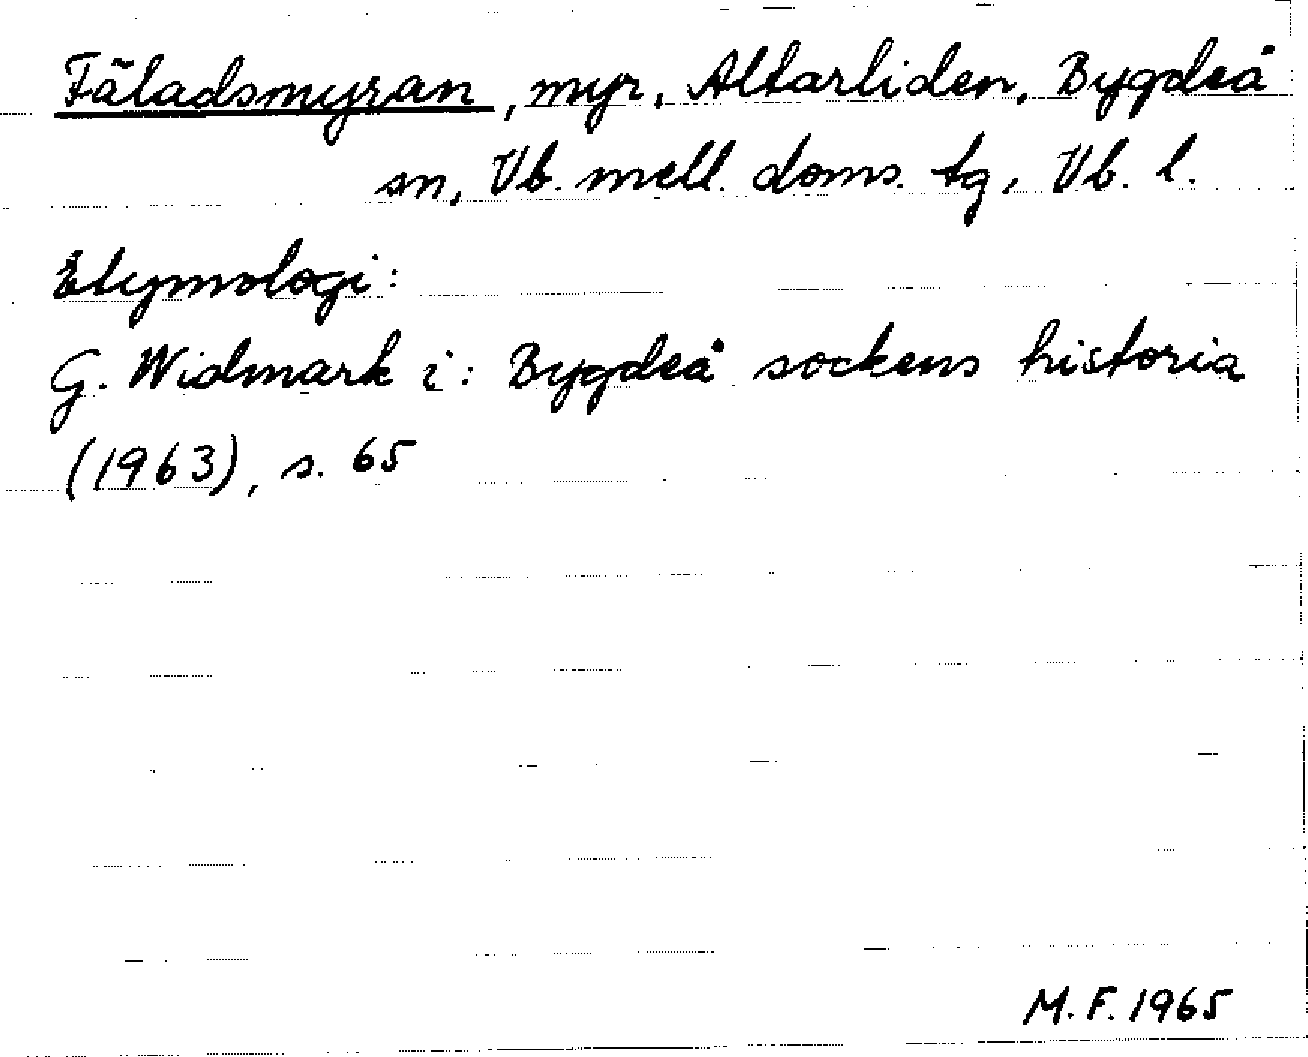 Fäladsmyran, myr, Altarliden, Bygdeå
sn, Vb. mell. doms. tg, Vb. l.
Etymologi:
G. Widmark i: Bygdeå sockens historia
(1963), s. 65
M. F. 1965